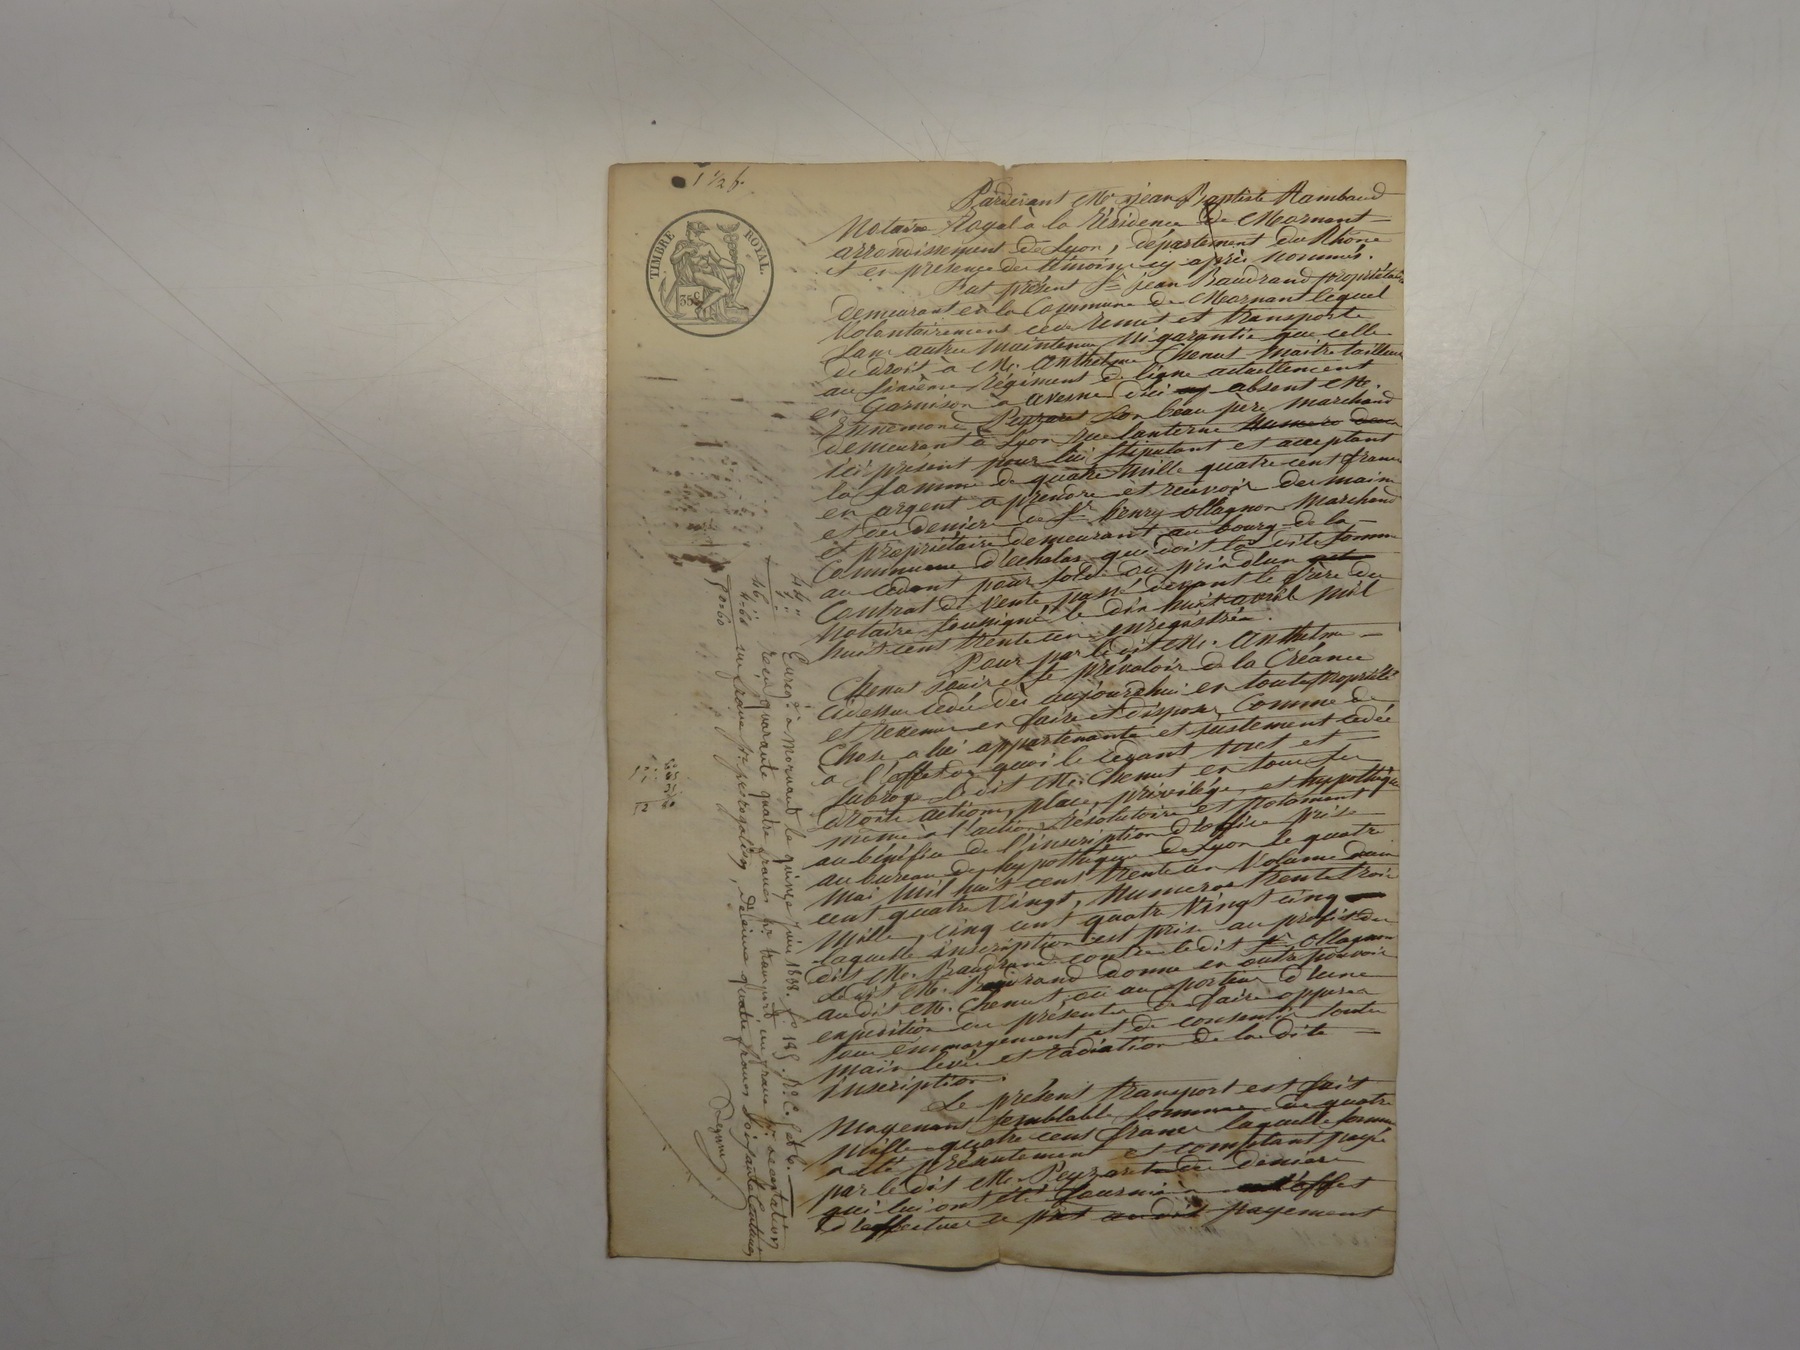 1 1/2 f.
TIMBRE ROYAL.
35c
Pardevant Me. jean Baptiste Rambaud
Notaire Royal à la Résidence de Mornant
arrondissement de Lyon, département du Rhône
et en présence des témoins cy après nommés.
Fut présent Sr. jean Baudrand propriétaire
demeurant en la Commune de Mornant lequel
Volontairement cède remet et transporte
Sans autre maintenue ni garantie que celle
de droit à Mr. Anthelme Chenut Maitre tailleur
au sixième Régiment de ligne actuellement
en Garnison à avesne d'ici absent Mr.
Ennemond Peyzaret son beau père marchand
demeurant à Lyon rue lanterne numero deux
ici présent pour lui stipulant et acceptant
la somme de quatre Mille quatre cent francs
en argent à prendre et recevoir des mains
et des deniers de Sr. henry ollagnon Marchand
et propriétaire demeurant au bourg de la
Commune d'échalas qui doit la dite somme
au cédant pour solde du prix d'un
Contrat de Vente passé devant le frère du
Notaire soussigné le dix huit avril mil
huit cent trente un enregistrée.
Pour par le dit Mr. Anthelme
Chenut jouir et se prévaloir de la Créance
cidessus cédée dès aujourdhui en toute propriété
et revenus en faire et disposer Comme de
Chose à lui appartenante et justement cédée
à l'effet de quoi le cédant tous et
subroge le dit Mr. Chenut en tous ses
droits actions, place, privilége, et hypothèque
même à l'action Résolutoire et notament
au bénéfice de l'inscription d'office prise
au bureau des hypothèques de Lyon le quatre
Mai Mil huit cent trente un Volume
cent quatre Vingt, Numeros trente trois
Mille, cinq cent quatre Vingt cinq
laquelle inscription est prise au profit du
dit Mr. Baudrand contre le dit Sr. ollagnon
le dit Mr. Baudrand donne en outre pouvoir
au dit Mr. Chenut ou au porteur d'une
expédition des présentes de faire opposer
tous emmargement et de consentir toute
main levée et radiation de la dite
inscription.
Le présent transport est fait
Moyenant semblable somme de quatre
Mille quatre cent francs laquelle somme
a été présentement et comptant payée
par le dit Mr. Peyzaret des deniers
qui lui ont été fournis à l'effet
d'effectuer le payement
Enregé. à Mornant le quinze juin 1838. fo. 185. Ro. Ce. 5 et 6.
reçu quarante quatre francs pr. transport un franc pr. acceptation
un franc pr. prorogation, décime quatre francs soixante centimes
44 "
1 "
1 "
46 "
4-60
50-60